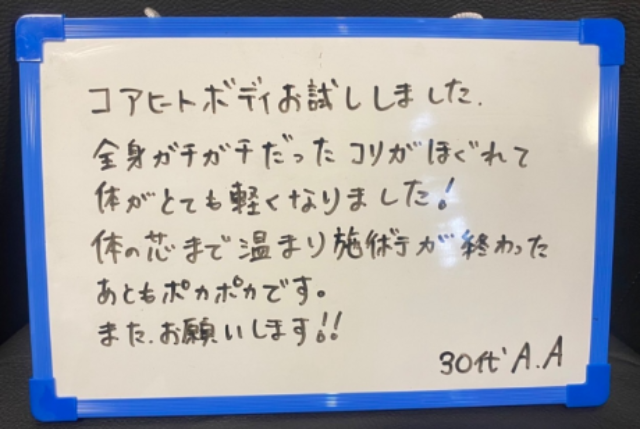 コアヒートボディお試ししました.
全身ガチガチだったコリがほぐれて
体がとても軽くなりました!
体の芯まで温まり施術が終わった
あともポカポカです。
また、お願いします!!
30代 A.A